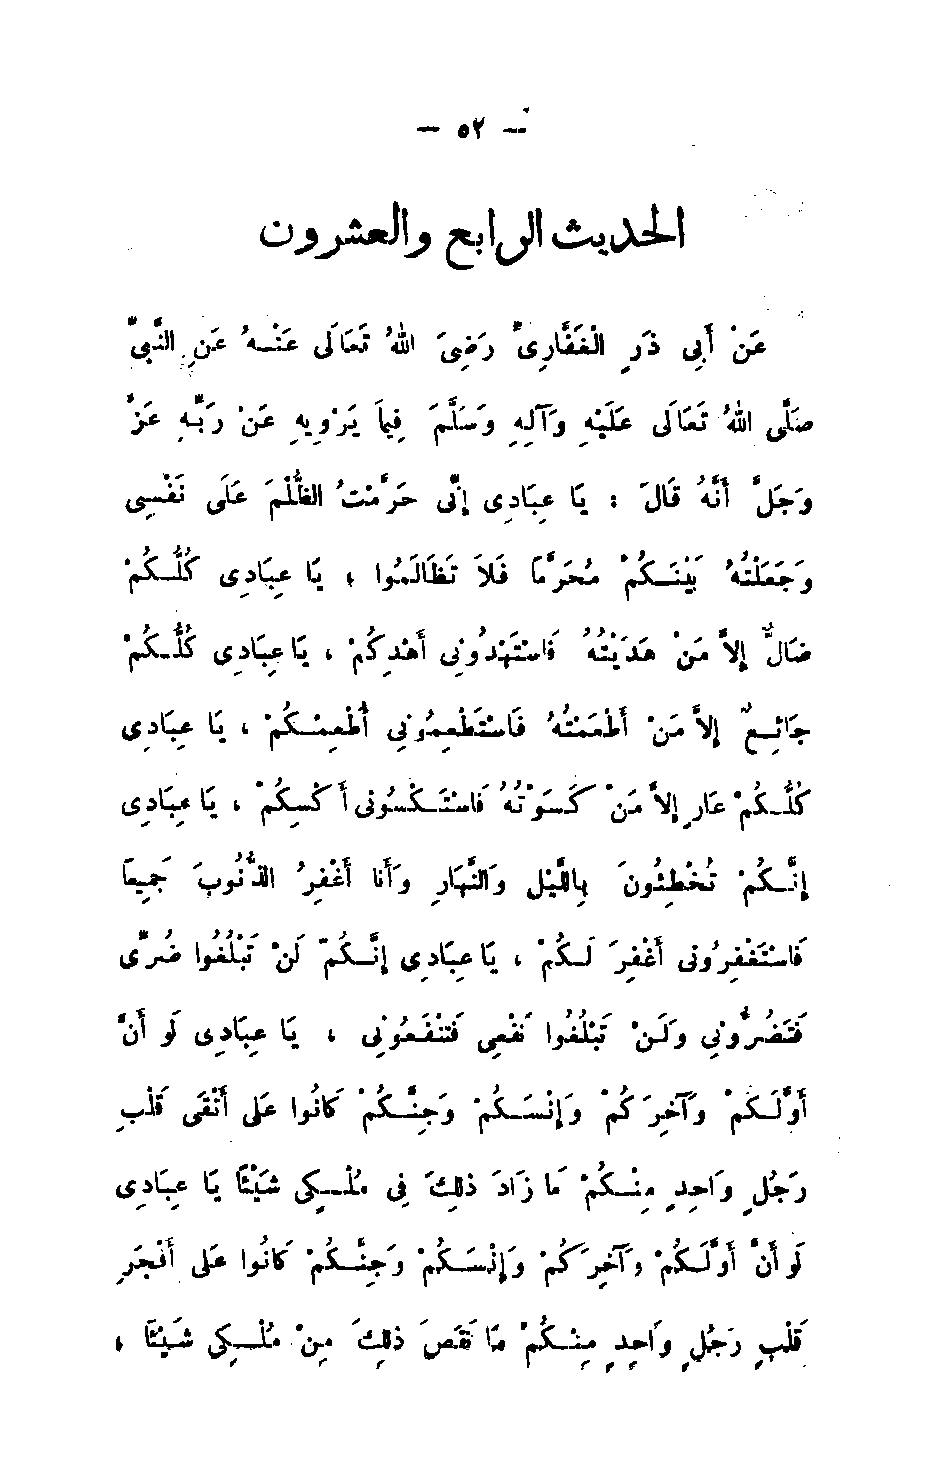 — ٥٢ —
الحديث الرابع والعشرون
عَنْ أَبِي ذَرٍ الْغَفَّارِىِّ رَضِىَ اللهُ تَعَالَى عَنْهُ عَنِ النَّبِيِّ
صَلَّى اللهُ تَعَالَى عَلَيْهِ وَآلِهِ وَسَلَّمَ فِيَما يَرْوِيهِ عَنْ رَبِّهِ عَزَّ
وَجَلَّ أَنَّهُ قَالَ : يَا عِبَادِى إِنِّى حَرَّمْتُ الظُّلْمَ عَلَى نَفْسِى
وَجَعَلْتُهُ بَيْنَكُمْ مُحَرَّمًا فَلاَ تَظَالَمُوا ، يَا عِبَادِى كُلُّكُمْ
ضَالٌّ إِلاَّ مَنْ هَدَيْتُهُ فَاسْتَهْدُونِى أَهْدِكُمْ ، يَا عِبَادِى كُلُّكُمْ
جَائِعٌ إِلاَّ مَنْ أَطْعَمْتُهُ فَاسْتَطْعِمُونِى أُطْعِمْكُمْ ، يَا عِبَادِى
كُلُّكُمْ عَارٍ إِلاَّ مَنْ كَسَوْتُهُ فَاسْتَكْسُونِى أَكْسِكُمْ ، يَا عِبَادِى
إِنَّكُمْ تُخْطِئُونَ بِاللَّيْلِ وَالنَّهَارِ وَأَنَا أَغْفِرُ الذُّنُوبَ جَمِيعًا
فَاسْتَغْفِرُونِى أَغْفِرَ لَكُمْ ، يَا عِبَادِى إِنَّكُمْ لَنْ تَبْلُغُوا ضُرِّى
فَتَضُرُّونِى وَلَنْ تَبْلُغُوا نَفْعِى فَتَنْفَعُونِى ، يَا عِبَادِى لَو أَنَّ
أَوَّلَكُمْ وَآخِرَكُمْ وَإِنْسَكُمْ وَجِنَّكُمْ كَانُوا عَلَى أَتْقَى قَلْبِ
رَجُلٍ وَاحِدٍ مِنْكُمْ مَا زَادَ ذلِكَ فِى مُلْكِى شَيْئًا يَا عِبَادِى
لَو أَنَّ أَوَّلَكُمْ وَآخِرَكُمْ وَإِنْسَكُمْ وَجِنَّكُمْ كَانُوا عَلَى أَفْجَرِ
قَلْبِ رَجُلٍ وَاحِدٍ مِنْكُمْ مَا نَقَصَ ذلِكَ مِنْ مُلْكِى شَيْئًا ،